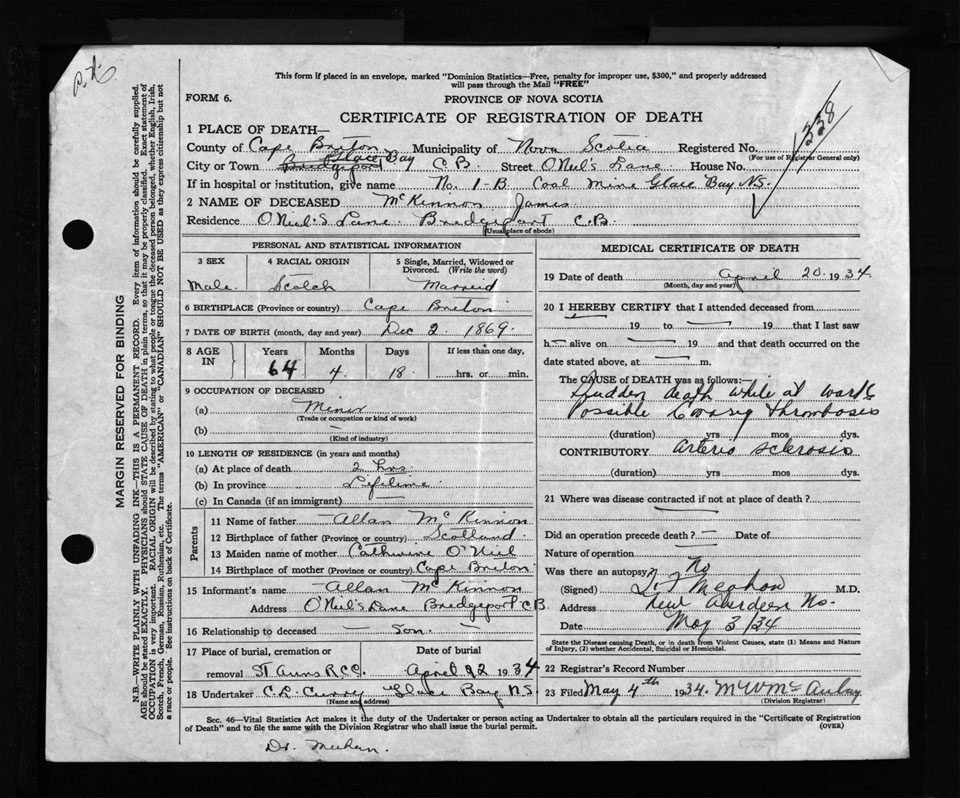 This form if placed in an envelope, marked "Dominion Statistics—Free, penalty for improper use, $300," and properly addressed
will pass through the Mail "FREE"
FORM 6.
PROVINCE OF NOVA SCOTIA
CERTIFICATE OF REGISTRATION OF DEATH
338
1 PLACE OF DEATH—
County of Cape Breton Municipality of Nova Scotia Registered No.
(For use of Registrar General only)
City or Town Bridgeport Glace Bay C B. Street O'Niel's Lane. House No.
If in hospital or institution, give name No. 1-B Coal Mine Glace Bay N.S.
2 NAME OF DECEASED McKinnon James
Residence O'Niel's Lane. Bridgeport C.B.
(Usual place of abode)
PERSONAL AND STATISTICAL INFORMATION
3 SEX 4 RACIAL ORIGIN 5 Single, Married, Widowed or Divorced. (Write the word)
Male. Scotch Married
6 BIRTHPLACE (Province or country) Cape Breton
7 DATE OF BIRTH (month, day and year) Dec 2. 1869.
8 AGE IN Years Months Days If less than one day,
64 4 18 hrs. or min.
9 OCCUPATION OF DECEASED
(a) Miner
(Trade or occupation or kind of work)
(b) —
(Kind of industry)
10 LENGTH OF RESIDENCE (in years and months)
(a) At place of death 2 hrs
(b) In province Lifetime
(c) In Canada (if an immigrant) —
Parents
11 Name of father Allan McKinnon
12 Birthplace of father (Province or country) Scotland.
13 Maiden name of mother Catherine O'Niel
14 Birthplace of mother (Province or country) Cape Breton.
15 Informant's name Allan McKinnon
Address O'Niel's Lane Bridgeport C.B
16 Relationship to deceased — Son. —
17 Place of burial, cremation or removal Date of burial
St Anns R.C.C. April 22 1934
18 Undertaker C.R. Curry Glace Bay N.S.
(Name and address)
MEDICAL CERTIFICATE OF DEATH
19 Date of death April 20. 1934.
(Month, day and year)
20 I HEREBY CERTIFY that I attended deceased from
— 19 to — 19 that I last saw
h — alive on — 19 and that death occurred on the
date stated above, at — m.
The CAUSE OF DEATH was as follows:
Sudden death while at work
Possible Coronary thrombosis
(duration) yrs mos dys.
CONTRIBUTORY Arterio Sclerosis
(duration) yrs mos dys.
21 Where was disease contracted if not at place of death?
—
Did an operation precede death? — Date of
Nature of operation —
Was there an autopsy? No
(Signed) M.D.
Address New Aberdeen
Date May 3/34
State the Disease causing Death, or in death from Violent Causes, state (1) Means and Nature
of Injury, (2) whether Accidental, Suicidal or Homicidal.
22 Registrar's Record Number
23 Filed May 4th 1934. McAulay
(Division Registrar)
Sec. 46—Vital Statistics Act makes it the duty of the Undertaker or person acting as Undertaker to obtain all the particulars required in the "Certificate of Registration
of Death" and to file the same with the Division Registrar who shall issue the burial permit.
(OVER)
Dr. Meehan.
MARGIN RESERVED FOR BINDING
N.B.—WRITE PLAINLY WITH UNFADING INK—THIS IS A PERMANENT RECORD. Every item of information should be carefully supplied.
AGE should be stated EXACTLY. PHYSICIANS should STATE CAUSE OF DEATH in plain terms, so that it may be properly classified. Exact statement of
OCCUPATION is very important. RACIAL ORIGIN will be described by stating to what people or tongue the deceased person belonged, whether English, Irish,
Scotch, French, German, Russian, Ruthenian, etc. The terms "AMERICAN" or "CANADIAN" SHOULD NOT BE USED as they express citizenship but not
a race or people. See instructions on back of Certificate.